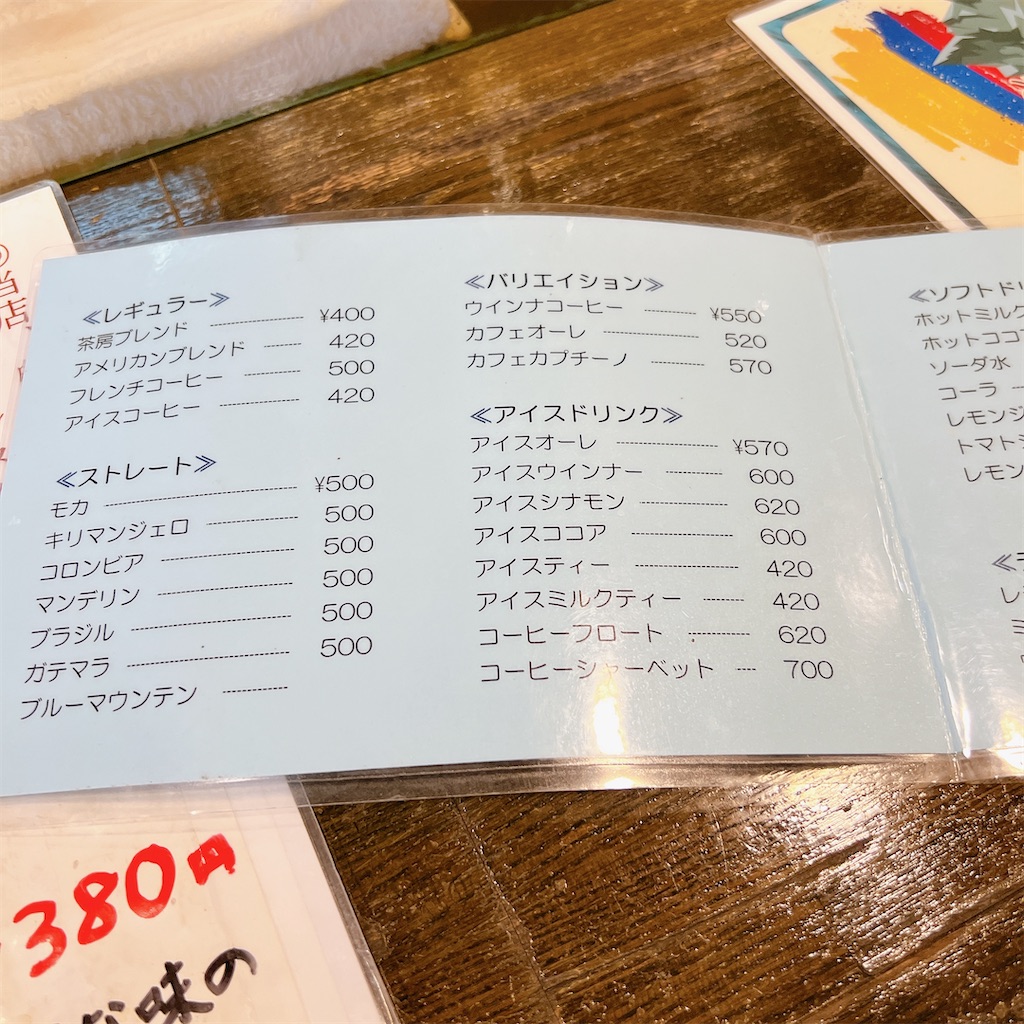 ≪レギュラー≫
茶房ブレンド ¥400
アメリカンブレンド 420
フレンチコーヒー 500
アイスコーヒー 420
≪ストレート≫
モカ ¥500
キリマンジェロ 500
コロンビア 500
マンデリン 500
ブラジル 500
ガテマラ 500
ブルーマウンテン
≪バリエイション≫
ウインナコーヒー ¥550
カフェオーレ 520
カフェカプチーノ 570
≪アイスドリンク≫
アイスオーレ ¥570
アイスウインナー 600
アイスシナモン 620
アイスココア 600
アイスティー 420
アイスミルクティー 420
コーヒーフロート 620
コーヒーシャーベット 700
≪ソフトドリ
ホットミルク
ホットココア
ソーダ水
コーラ
レモンジ
トマトジ
レモン
当店
380円
味の